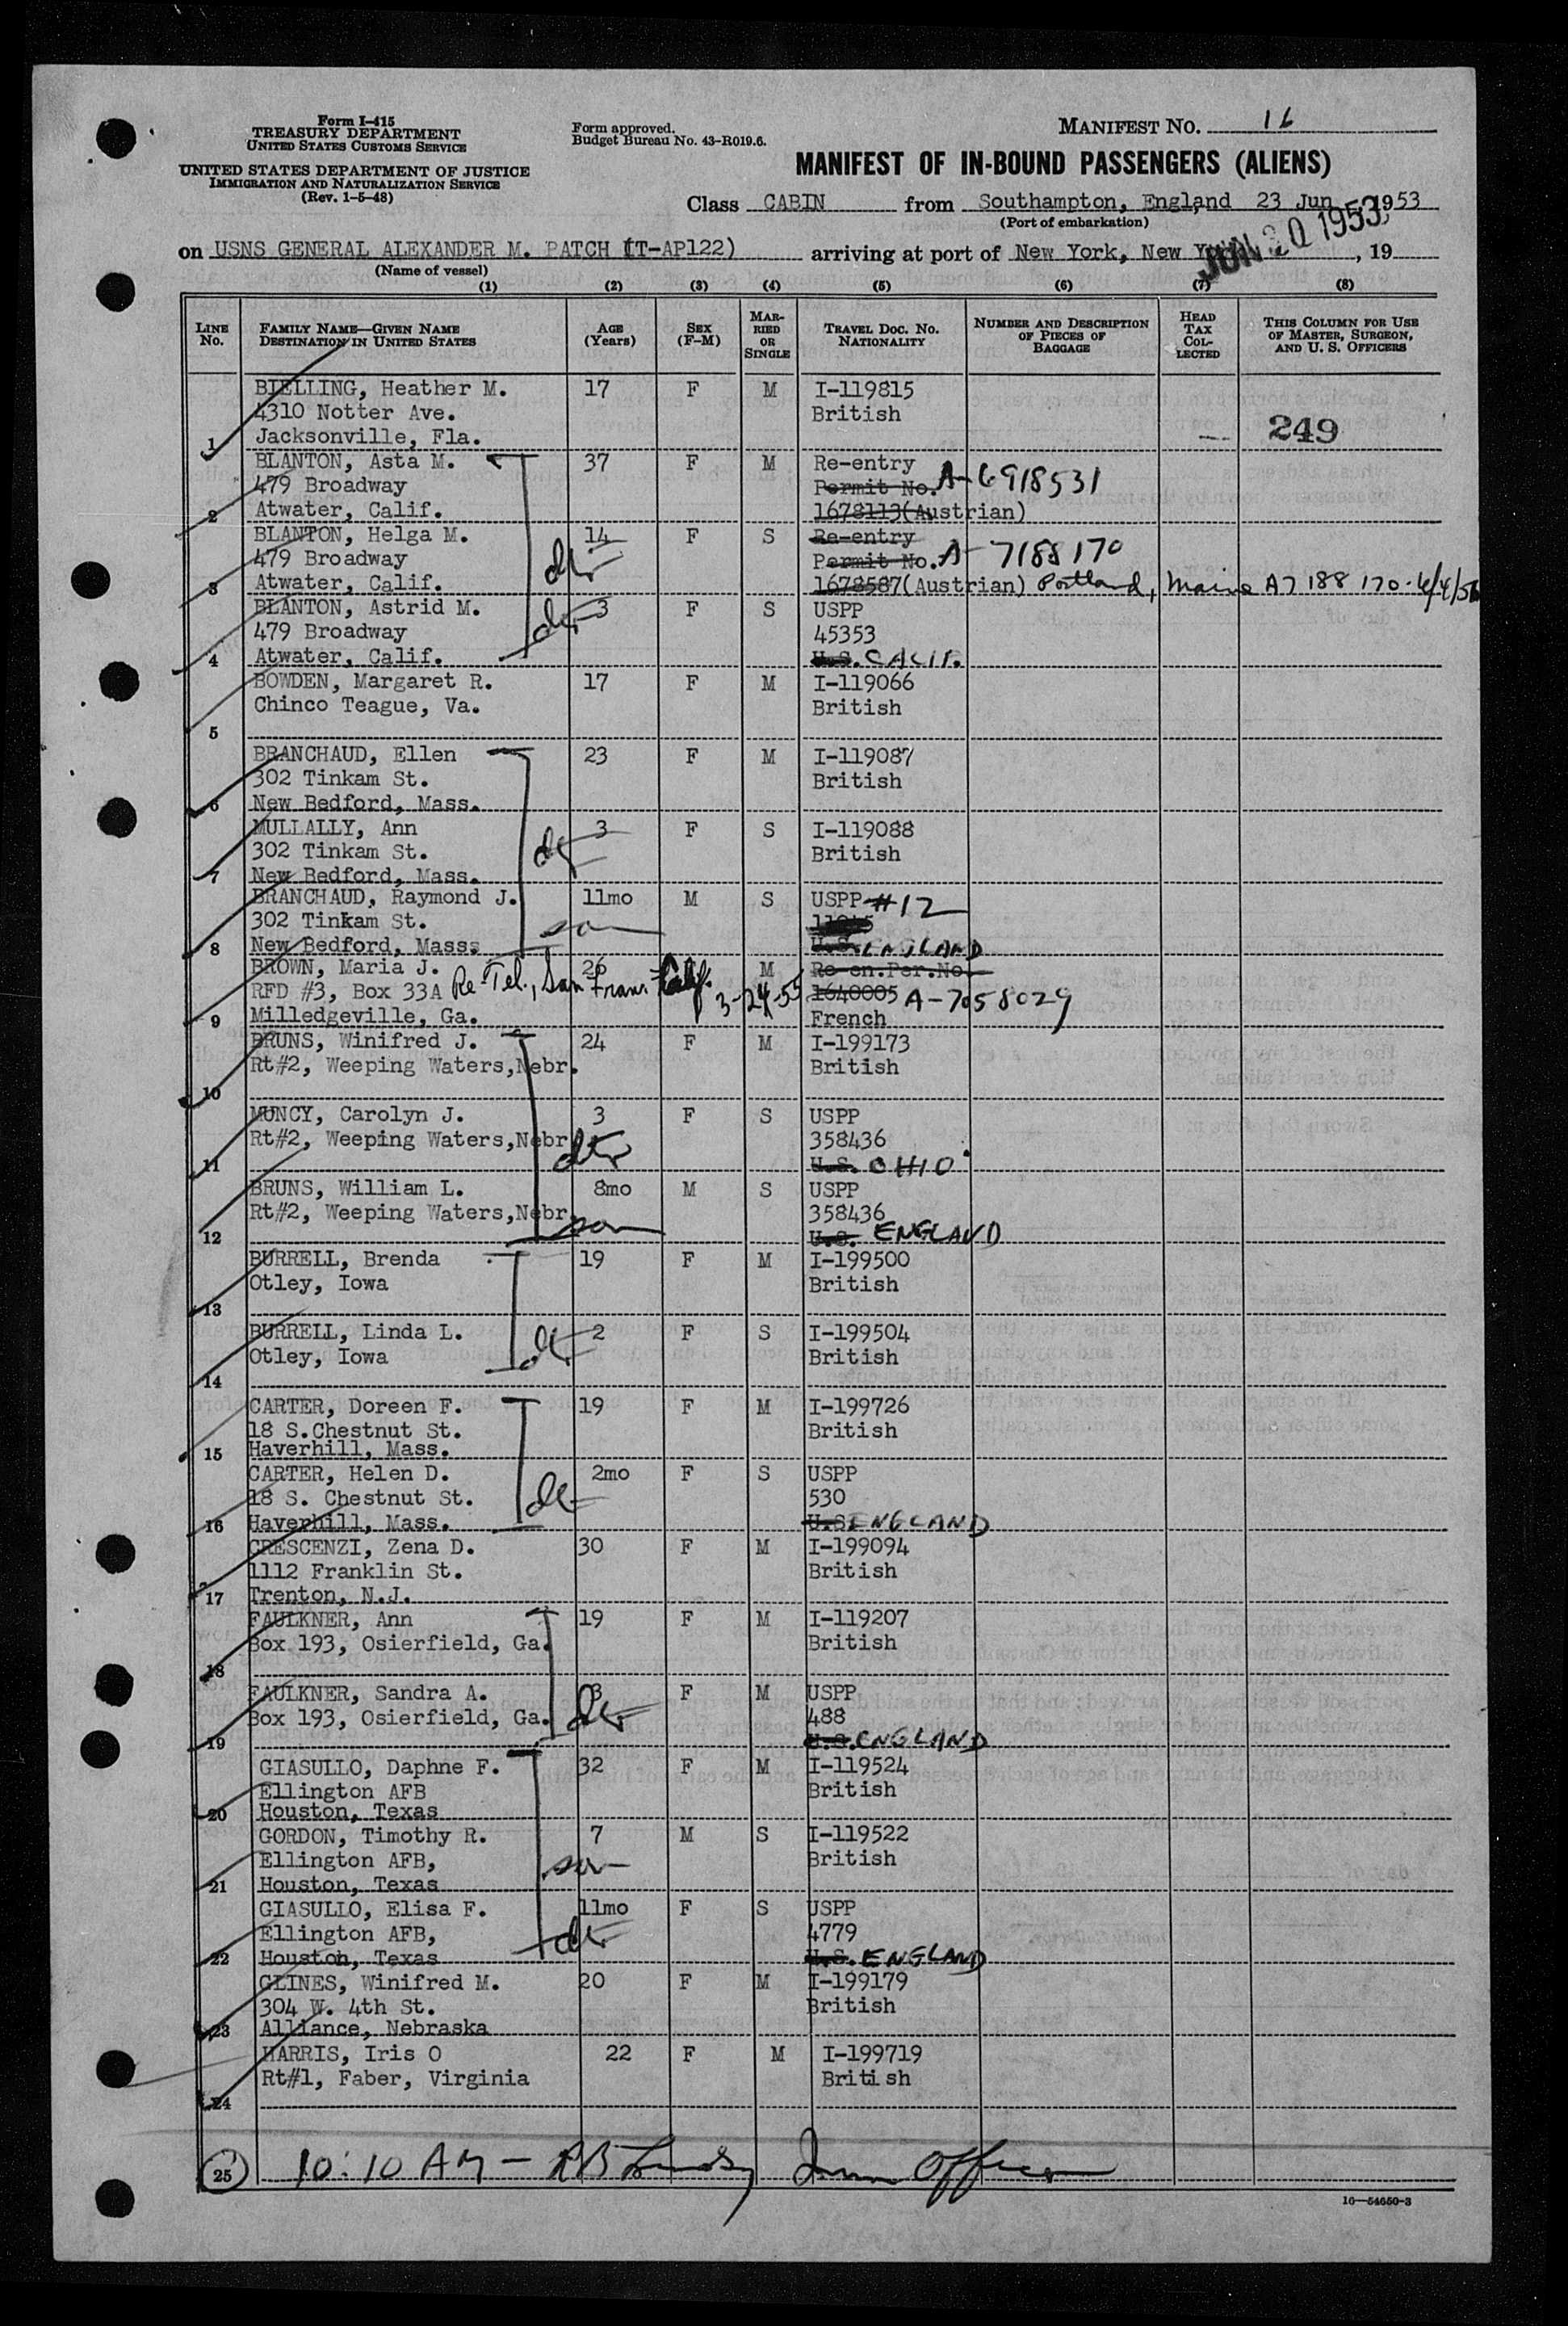 Form I-415
TREASURY DEPARTMENT
UNITED STATES CUSTOMS SERVICE
UNITED STATES DEPARTMENT OF JUSTICE
IMMIGRATION AND NATURALIZATION SERVICE
(Rev. 1-5-48)
Form approved.
Budget Bureau No. 43-R019.6.
MANIFEST NO. 16
MANIFEST OF IN-BOUND PASSENGERS (ALIENS)
Class CABIN from Southampton, England 23 Jun, 1953
(Port of embarkation)
on USNS GENERAL ALEXANDER M. PATCH (T-AP122) arriving at port of New York, New York, 19
JUN 30 1953
(Name of vessel)
(1) (2) (3) (4) (5) (6) (7) (8)
LINE No. FAMILY NAME—GIVEN NAME DESTINATION IN UNITED STATES AGE (Years) SEX (F-M) MARRIED OR SINGLE TRAVEL DOC. NO. NATIONALITY NUMBER AND DESCRIPTION OF PIECES OF BAGGAGE HEAD TAX COLLECTED THIS COLUMN FOR USE OF MASTER, SURGEON, AND U. S. OFFICERS
BIELLING, Heather M. 17 F M I-119815
4310 Notter Ave. British
1 Jacksonville, Fla. -- 249
BLANTON, Asta M. 37 F M Re-entry
479 Broadway Permit No. A-6918531
2 Atwater, Calif. 1678113(Austrian)
BLANTON, Helga M. 14 F S Re-entry
479 Broadway dtr Permit No. A-7188170
3 Atwater, Calif. 1678587(Austrian) Portland, Maine A7 188 170
BLANTON, Astrid M. 3 F S USPP
479 Broadway dtr 45353
4 Atwater, Calif. U.S. CALIF.
BOWDEN, Margaret R. 17 F M I-119066
Chinco Teague, Va. British
5
BRANCHAUD, Ellen 23 F M I-119087
302 Tinkam St. British
6 New Bedford, Mass.
MULLALLY, Ann 3 F S I-119088
302 Tinkam St. dtr British
7 New Bedford, Mass.
BRANCHAUD, Raymond J. 11mo M S USPP #12
302 Tinkam St. son
8 New Bedford, Mass. U.S. ENGLAND
BROWN, Maria J. 26 M Re-en.Per.No.
RFD #3, Box 33A Re-Tel., San Fran. Calif. 3-24-55 1640005 A-7058029
9 Milledgeville, Ga. French
BRUNS, Winifred J. 24 F M I-199173
Rt#2, Weeping Waters,Nebr. British
10
MUNCY, Carolyn J. 3 F S USPP
Rt#2, Weeping Waters,Nebr dtr 358436
11 U.S. OHIO
BRUNS, William L. 8mo M S USPP
Rt#2, Weeping Waters,Nebr son 358436
12 U.S. ENGLAND
BURRELL, Brenda 19 F M I-199500
Otley, Iowa British
13
BURRELL, Linda L. 2 F S I-199504
Otley, Iowa dtr British
14
CARTER, Doreen F. 19 F M I-199726
18 S.Chestnut St. British
15 Haverhill, Mass.
CARTER, Helen D. 2mo F S USPP
18 S. Chestnut St. dtr 530
16 Haverhill, Mass. U.S ENGLAND
CRESCENZI, Zena D. 30 F M I-199094
1112 Franklin St. British
17 Trenton, N.J.
FAULKNER, Ann 19 F M I-119207
Box 193, Osierfield, Ga. British
18
FAULKNER, Sandra A. 3 F M USPP
Box 193, Osierfield, Ga. dtr 488
19 U.S. ENGLAND
GIASULLO, Daphne F. 32 F M I-119524
Ellington AFB British
20 Houston, Texas
GORDON, Timothy R. 7 M S I-119522
Ellington AFB, son British
21 Houston, Texas
GIASULLO, Elisa F. 11mo F S USPP
Ellington AFB, dtr 4779
22 Houston, Texas U.S. ENGLAND
GLINES, Winifred M. 20 F M I-199179
304 W. 4th St. British
23 Alliance, Nebraska
HARRIS, Iris O 22 F M I-199719
Rt#1, Faber, Virginia British
24
25 10:10 AM - Officer
16—54650-3